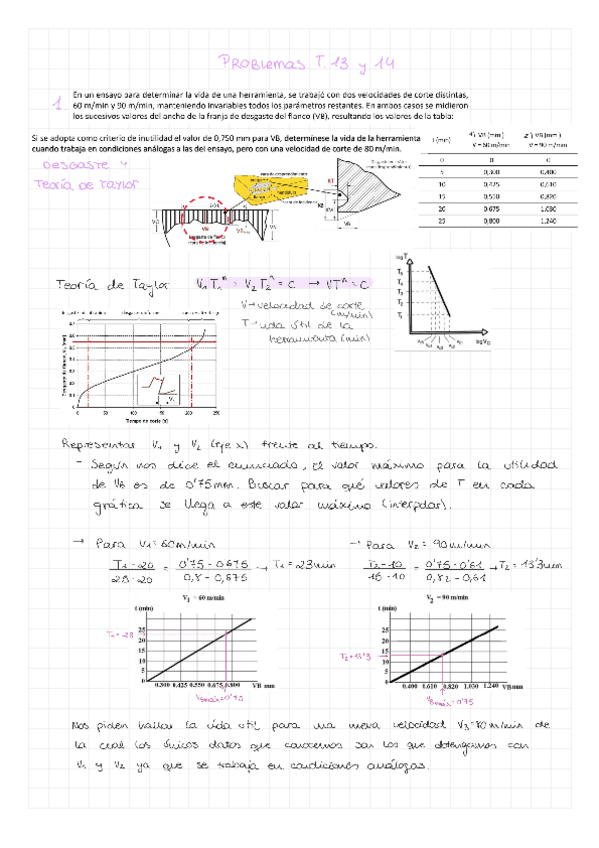 PROBLEMAS T. 13 y 14
1 En un ensayo para determinar la vida de una herramienta, se trabajó con dos velocidades de corte distintas,
60 m/min y 90 m/min, manteniendo invariables todos los parámetros restantes. En ambos casos se midieron
los sucesivos valores del ancho de la franja de desgaste del flanco (VB), resultando los valores de la tabla:
Si se adopta como criterio de inutilidad el valor de 0,750 mm para VB, determínese la vida de la herramienta
cuando trabaja en condiciones análogas a las del ensayo, pero con una velocidad de corte de 80 m/min.
t (min) VB (mm) VB (mm)
V = 60 m/min V = 90 m/min
0 0 0
5 0,300 0,400
10 0,425 0,610
15 0,550 0,820
20 0,675 1,030
25 0,800 1,240
DESGASTE Y
TEORÍA DE TAYLOR
KT
KB
KM
VB
Teoría de Taylor V₁T₁ⁿ = V₂T₂ⁿ = C → VTⁿ = C
V → velocidad de corte
(m/min)
T → vida útil de la
herramienta (min)
log T
T₅
T₄
T₃
T₂
T₁
log V
Tiempo de corte (s)
0 50 100 150 200 250
Representar V₁ y V₂ (eje x) frente al tiempo.
- Según nos dice el enunciado, el valor máximo para la utilidad
de VB es de 0'75mm. Buscar para qué valores de T en cada
gráfica se llega a este valor máximo (interpolar).
→ Para V₁ = 60m/min
T₁-20 / 25-20 = 0'75-0'675 / 0,8-0,675 → T₁ = 23min
→ Para V₂ = 90m/min
T₂-10 / 15-10 = 0'75-0'61 / 0,82-0,61 → T₂ = 13'3min
V₁ = 60 m/min
t (min)
25
20
15
10
5
0
0.300 0.425 0.550 0.675 0.800 VB mm
T₁ = 23
VBmáx=0'75
V₂ = 90 m/min
t (min)
25
20
15
10
5
0
0.400 0.610 0.820 1.030 1.240 VB mm
T₂=13'3
VBmáx=0'75
Nos piden hallar la vida útil para una nueva velocidad V₃=80m/min de
la cual los únicos datos que conocemos son los que obtengamos con
V₁ y V₂ ya que se trabaja en condiciones análogas.